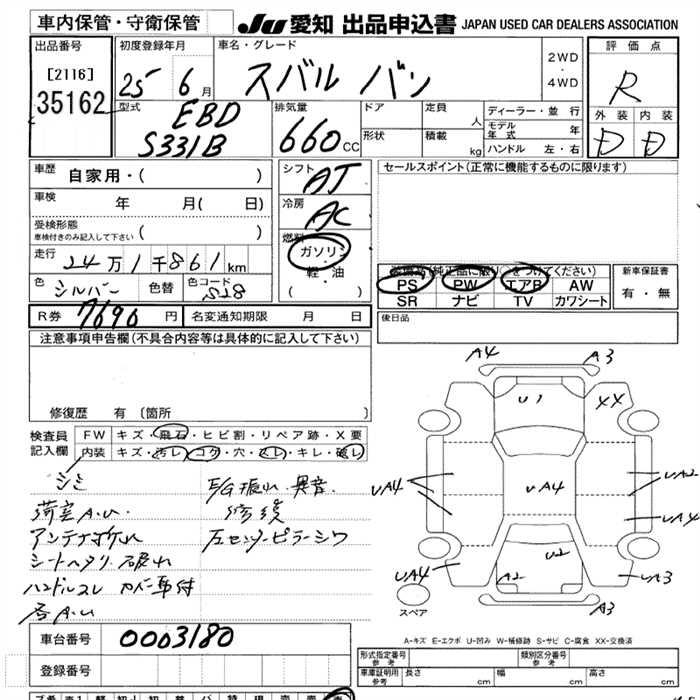 車内保管・守衛保管
JU 愛知 出品申込書 JAPAN USED CAR DEALERS ASSOCIATION
出品番号
[2116]
35162
初度登録年月
25 6月
車名・グレード
スバル バン
2WD
・
4WD
評価点
R
外装 内装
D D
型式
EBD
S331B
排気量
660cc
ドア
定員
人
形状
積載
kg
ディーラー・並行
モデル年式 年
ハンドル 左・右
車歴
自家用・( )
車検
年 月( 日)
受検形態
車検付きのみ記入して下さい ( )
走行
24万1千861km
色 シルバー 色替 色コード S28
R券 7690円 名変通知期限 月 日
シフト
AT
冷房
AC
燃料
ガソリン
軽・油
( )
セールスポイント(正常に機能するものに限ります)
装備品(純正品に限り○をつけてください)
PS PW エアB AW
SR ナビ TV カワシート
新車保証書
有・無
後日品
注意事項申告欄(不具合内容等は具体的に記入して下さい)
修復歴 有 〔箇所 〕
検査員記入欄
FW キズ・飛石・ヒビ割・リペア跡・X要
内装 キズ・汚レ・コゲ・穴・スレ・キレ・破レ
シミ
荷室A.U
アンテナ折れ
シートヘタリ 破れ
ハンドルスレ カバー車付
各A.U
E/G振れ・異音
修後
左センターピラーシワ
A4
A3
U1
XX
UA4
UA4
UA2
UA4
UA4
U2
A2
UA3
A3
スペア
A-キズ E-エクボ U-凹み W-補修跡 S-サビ C-腐食 XX-交換済
車台番号 0003180
登録番号
形式指定番号 参考
類別区分番号 参考
車庫証明用 参考 長さ cm 幅 cm 高さ cm